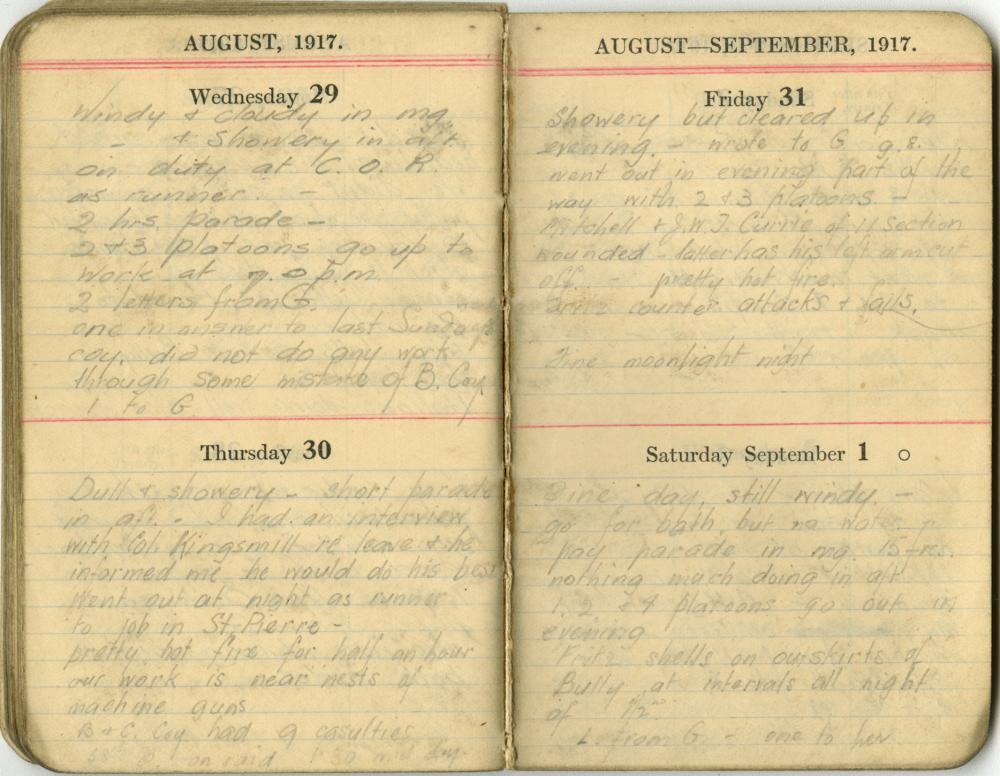 AUGUST, 1917.
Wednesday 29
Windy & cloudy in mg
- & showery in aft.
on duty at C. O. R.
as runner. -
2 hrs parade -
2 & 3 platoons go up to
work at 7.0 p.m.
2 letters from G.
one in answer to last Sundays
coy. did not do any work
through some mistake of B. Coy
1 to G.
Thursday 30
Dull & showery - short parade
in aft. - I had an interview
with Col. Kingsmill re leave & he
informed me he would do his best
Went out at night as runner
to job in St. Pierre -
pretty hot fire for half an hour
our work is near nests of
machine guns
B & C. Coy had 9 casulties
on raid 1.30
AUGUST—SEPTEMBER, 1917.
Friday 31
Showery but cleared up in
evening. - wrote to G
went out in evening part of the
way with 2 & 3 platoons -
Mitchell & J.W.J. Currie of 11 section
wounded - latter has his left arm cut
off. - pretty hot fire.
Fritz counter attacks & fails.
Fine moonlight night
Saturday September 1
Fine day, still windy. -
go for bath, but no water
pay parade in mg 15 frcs.
nothing much doing in aft
1, 2 & 4 platoons go out in
evening
Fritz shells on outskirts of
Bully at intervals all night
of
L. from G. - one to her